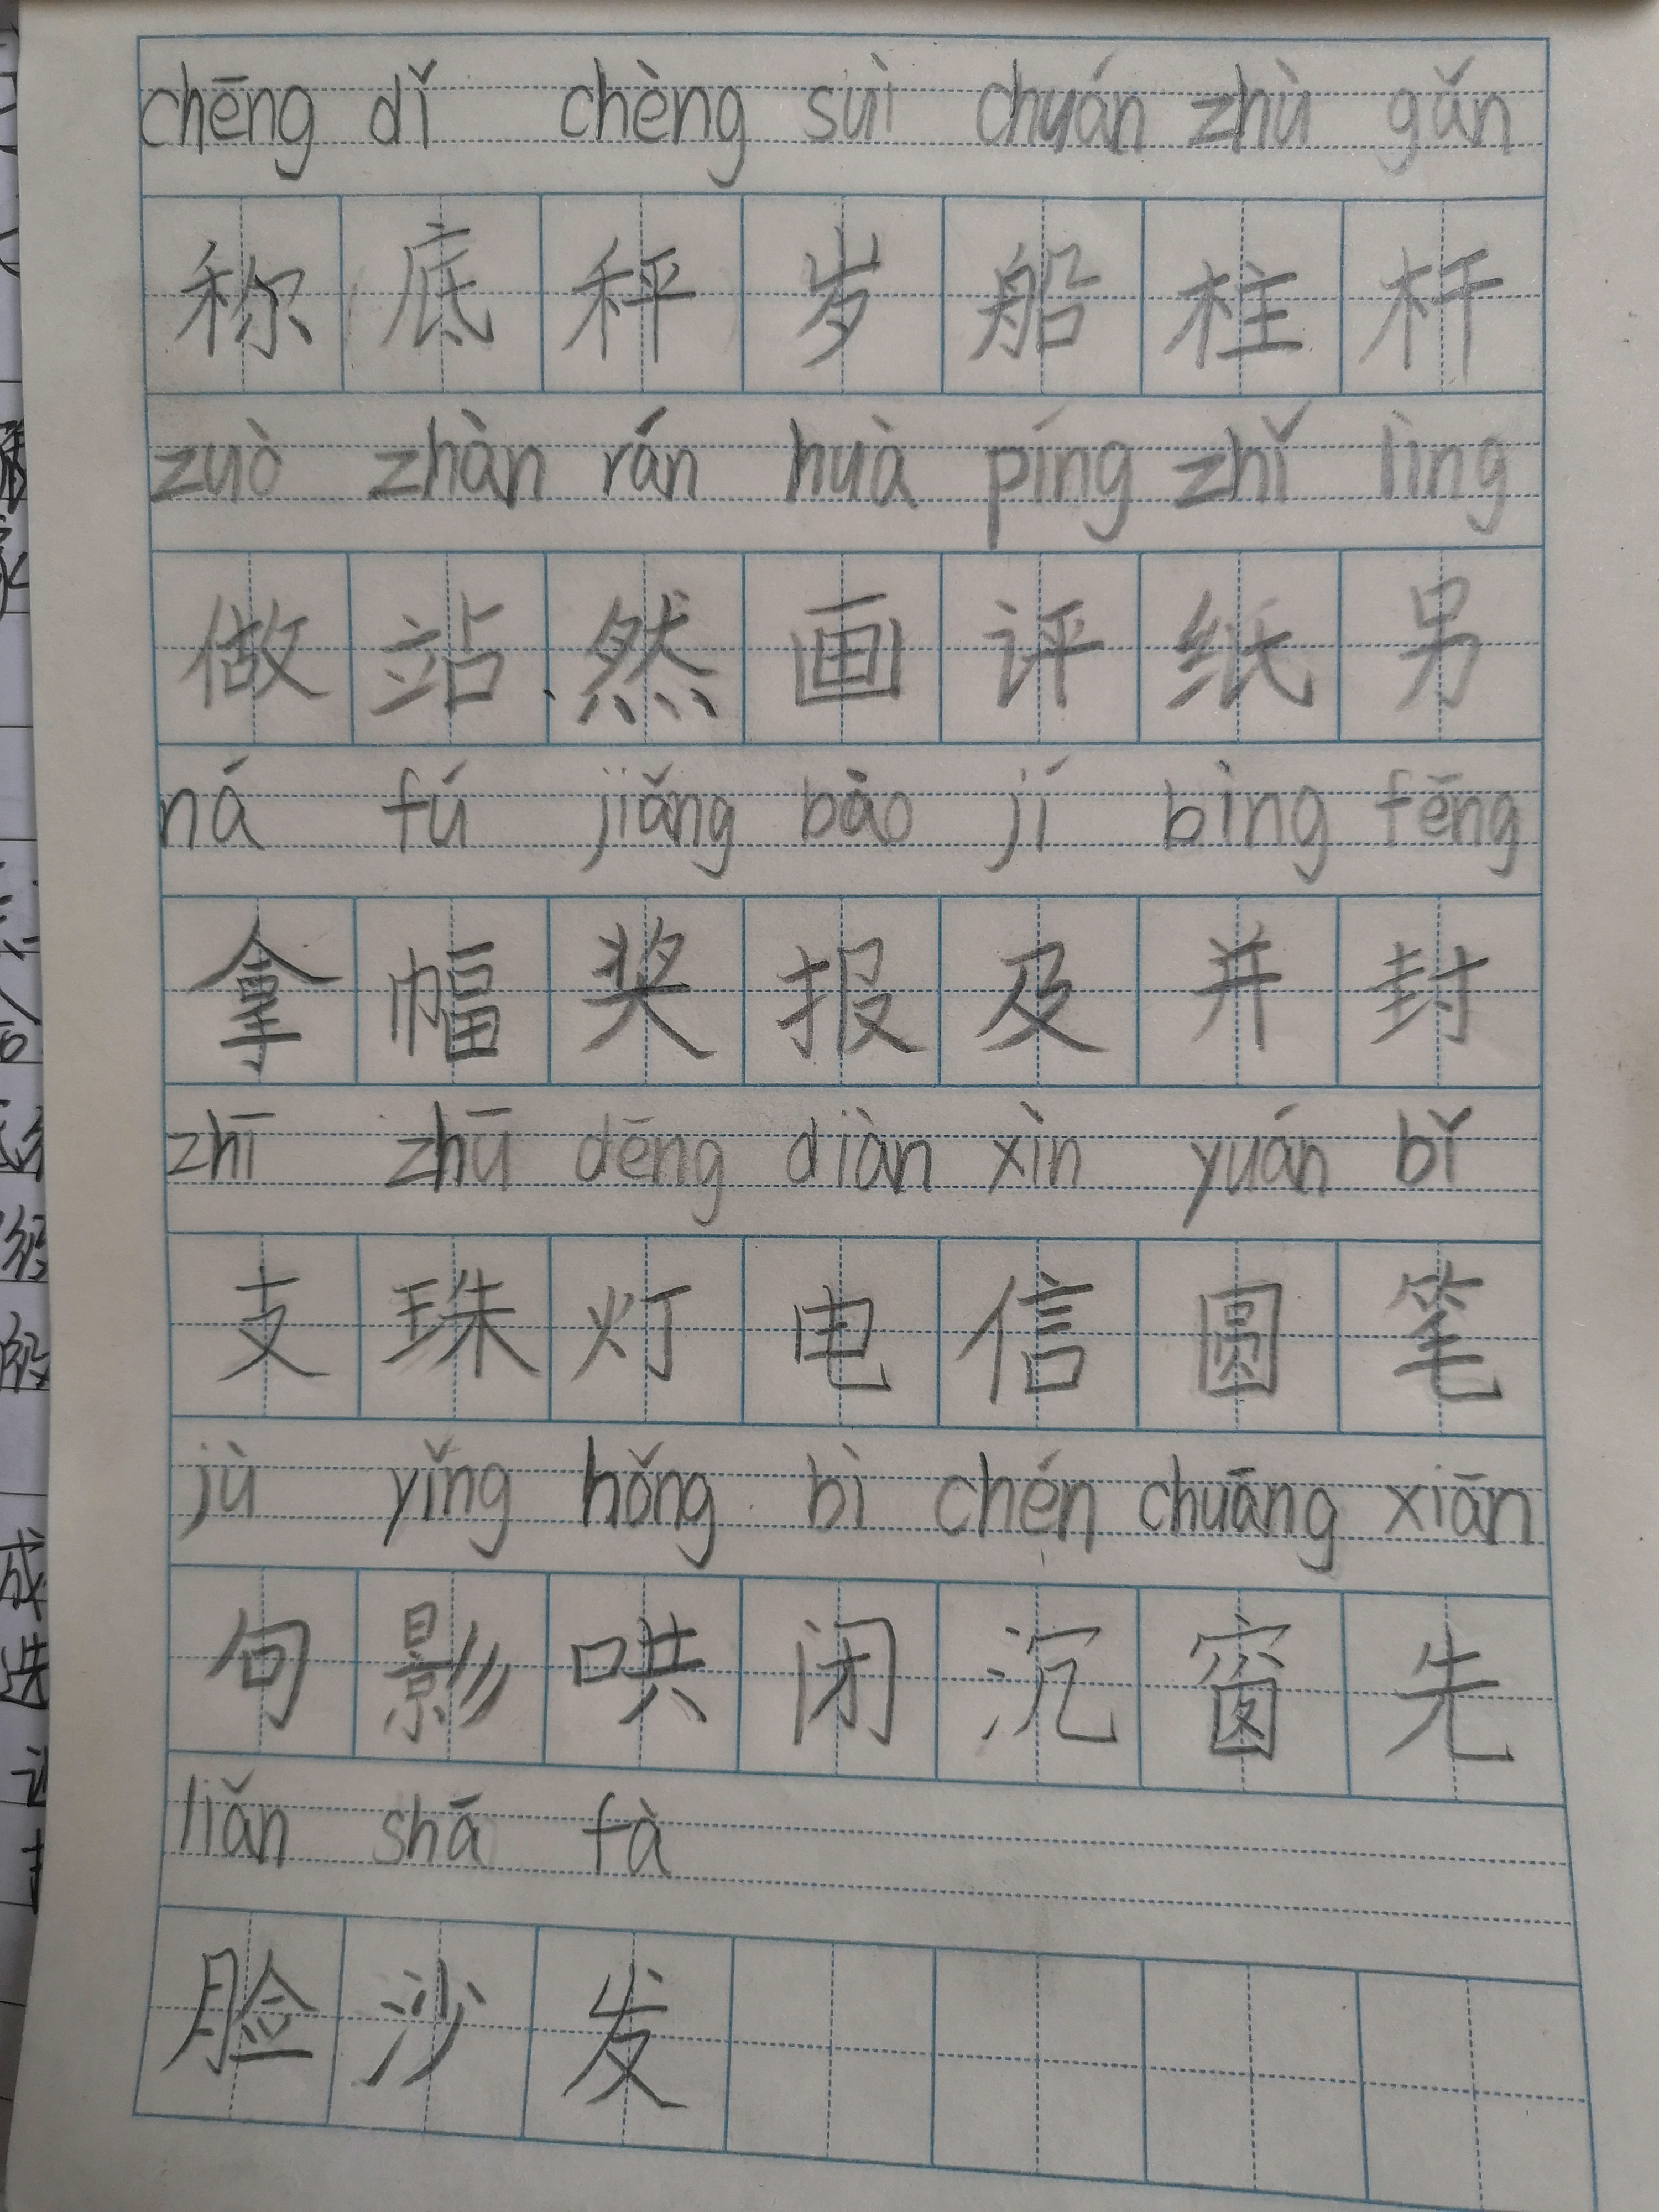 chēng dǐ chèng suì chuán zhù gǎn
称底秤岁船柱杆
zuò zhàn rán huà píng zhǐ lìng
做站然画评纸另
ná fú jiǎng bào jí bìng fēng
拿幅奖报及并封
zhī zhū dēng diàn xìn yuán bǐ
支珠灯电信圆笔
jù yǐng hǒng bì chén chuāng xiān
句影哄闭沉窗先
liǎn shā fà
脸沙发